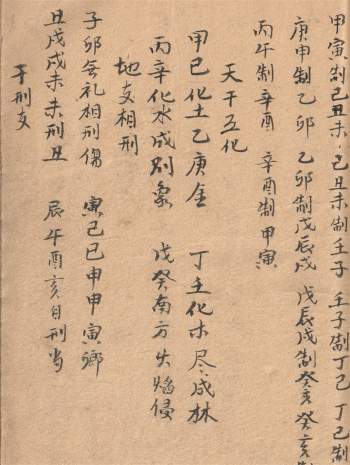 甲寅制己丑未 己丑未制壬子 壬子制丁巳 丁巳制
庚申制乙卯 乙卯制戊辰戌 戊辰戌制癸亥 癸亥制
丙午制辛酉 辛酉制甲寅
天干五化
甲己化土乙庚金 丁壬化木尽成林
丙辛化水成别象 戊癸南方火焰侵
地支相刑
子卯无礼相刑傷 寅巳巳申申寅鄉
丑戌戌未未刑丑 辰午酉亥自刑当
干刑支